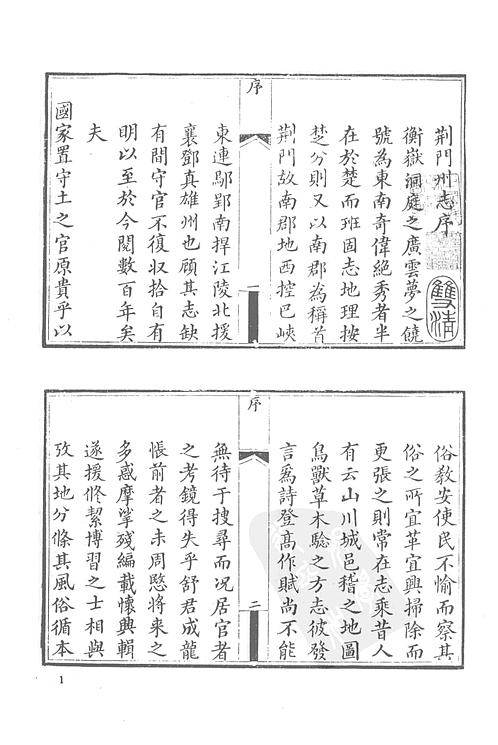 荆門州志序
衡嶽洞庭之廣雲夢之饒
號為東南奇偉絕秀者半
在於楚而班固志地理按
楚分則又以南郡為稱首
荆門故南郡地西控巴峽
序
一
東連鄢郢南捍江陵北援
襄鄧真雄州也顧其志缺
有間守官不復収拾自有
明以至於今閱數百年矣
夫
國家置守土之官原貴乎以
俗教安使民不愉而察其
俗之所宜革宜興掃除而
更張之則常在志乘昔人
有云山川城邑稽之地圖
鳥獸草木騐之方志彼發
言爲詩登髙作賦尚不能
序
二
無待于搜尋而况居官者
之考鏡得失乎舒君成龍
悵前者之未周愍將来之
多惑摩挲殘編載懷興輯
遂援修絜博習之士相與
攷其地分條其風俗循本
1